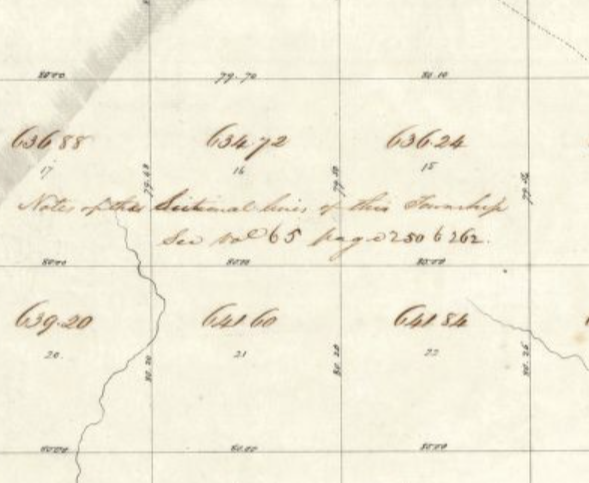 80.00 79.70 80.10
636.88 634.72 636.24
17 16 15
79.60 79.50 79.56
Notes of the Sectional lines of this Township
See vol 65 page 250 to 262.
80.00 80.00 80.00
639.20 641.60 641.84
20 21 22
80.20 80.20 80.26
80.00 80.00 80.00